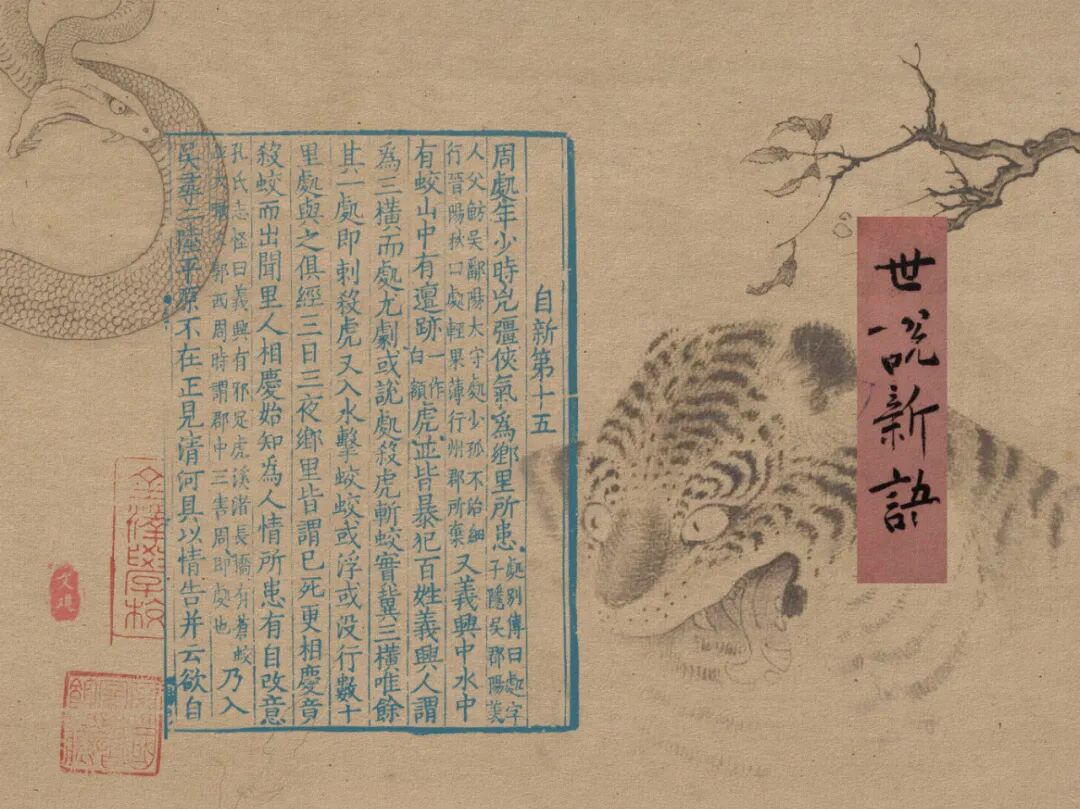 世說新語
自新第十五
周處年少時兇彊俠氣為鄉里所患處別傳曰處字子隱吳郡陽羨
人父魴吳鄱陽太守處少孤不治細行晉陽秋曰處輕果薄行州郡所棄又義興中水中
有蛟山中有邅跡一作白額虎並皆暴犯百姓義興人謂
為三橫而處尤劇或說處殺虎斬蛟實冀三橫唯餘
其一處即刺殺虎又入水擊蛟蛟或浮或没行數十
里處與之俱經三日三夜鄉里皆謂已死更相慶竟
殺蛟而出聞里人相慶始知為人情所患有自改意
孔氏志怪曰義興有邪足虎溪渚長橋有蒼蛟並大噉人郭西周時謂郡中三害周即處也乃入
吳尋二陸平原不在正見清河具以情告并云欲自